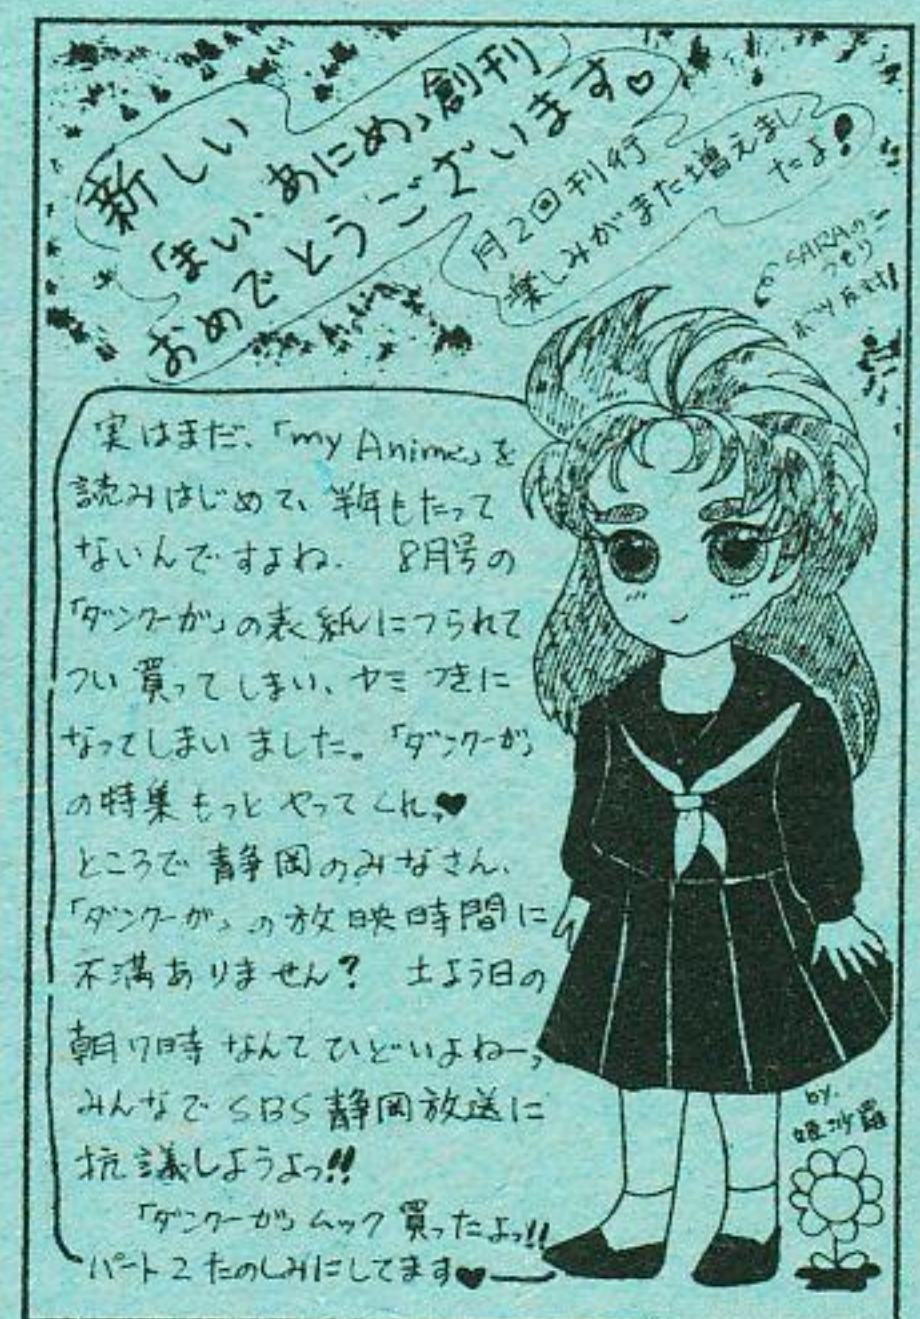 新しい
「まい・あにめ」創刊
おめでとうございます♡
月2回刊行
楽しみがまた増えまし
たよ!
SARAの
つもり
実はまだ、「my Anime」を
読みはじめて、半年もたって
ないんですよね. 8月号の
「ダンクーガ」の表紙につられて
つい買ってしまい、ヤミつきに
なってしまいました。「ダンクーガ」
の特集もっとやってくれ。♥
ところで静岡のみなさん、
「ダンクーガ」の放映時間に
不満ありません? 土よう日の
朝7時なんてひどいよねー。
みんなでSBS静岡放送に
抗議しようよっ!!
「ダンクーガ」ムック買ったよっ!!
パート2たのしみにしてます♥
by.
姫沙羅